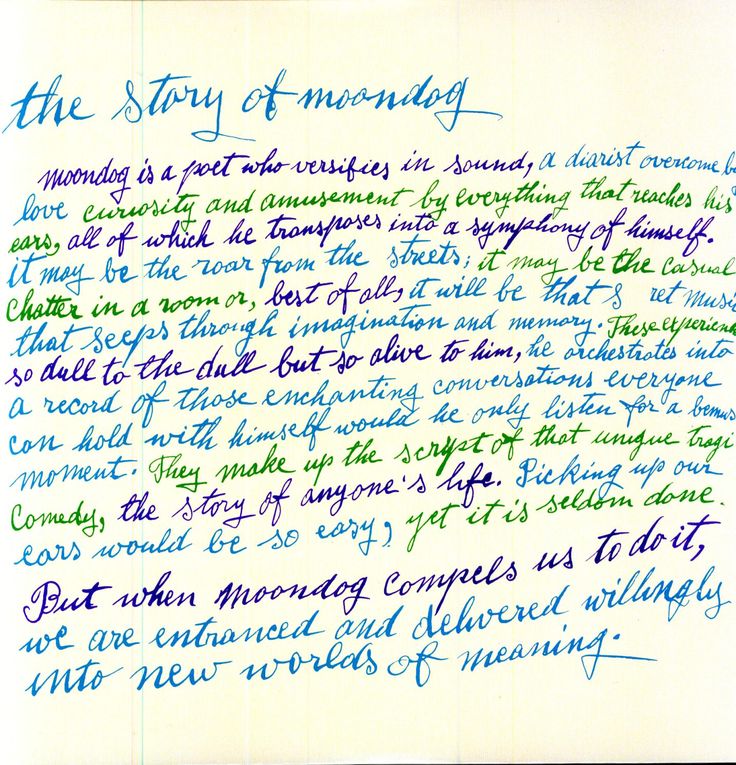 the story of moondog
moondog is a poet who versifies in sound, a diarist overcome b
love curiosity and amusement by everything that reaches his
ears, all of which he transposes into a symphony of himself.
it may be the roar from the streets; it may be the casual
chatter in a room or, best of all, it will be that s ret music
that seeps through imagination and memory. These experienc
so dull to the dull but so alive to him, he orchestrates into
a record of those enchanting conversations everyone
can hold with himself would he only listen for a bemus
moment. They make up the script of that unique tragi
comedy, the story of anyone's life. Picking up our
ears would be so easy, yet it is seldom done.
But when moondog compels us to do it,
we are entranced and delivered willingly
into new worlds of meaning.